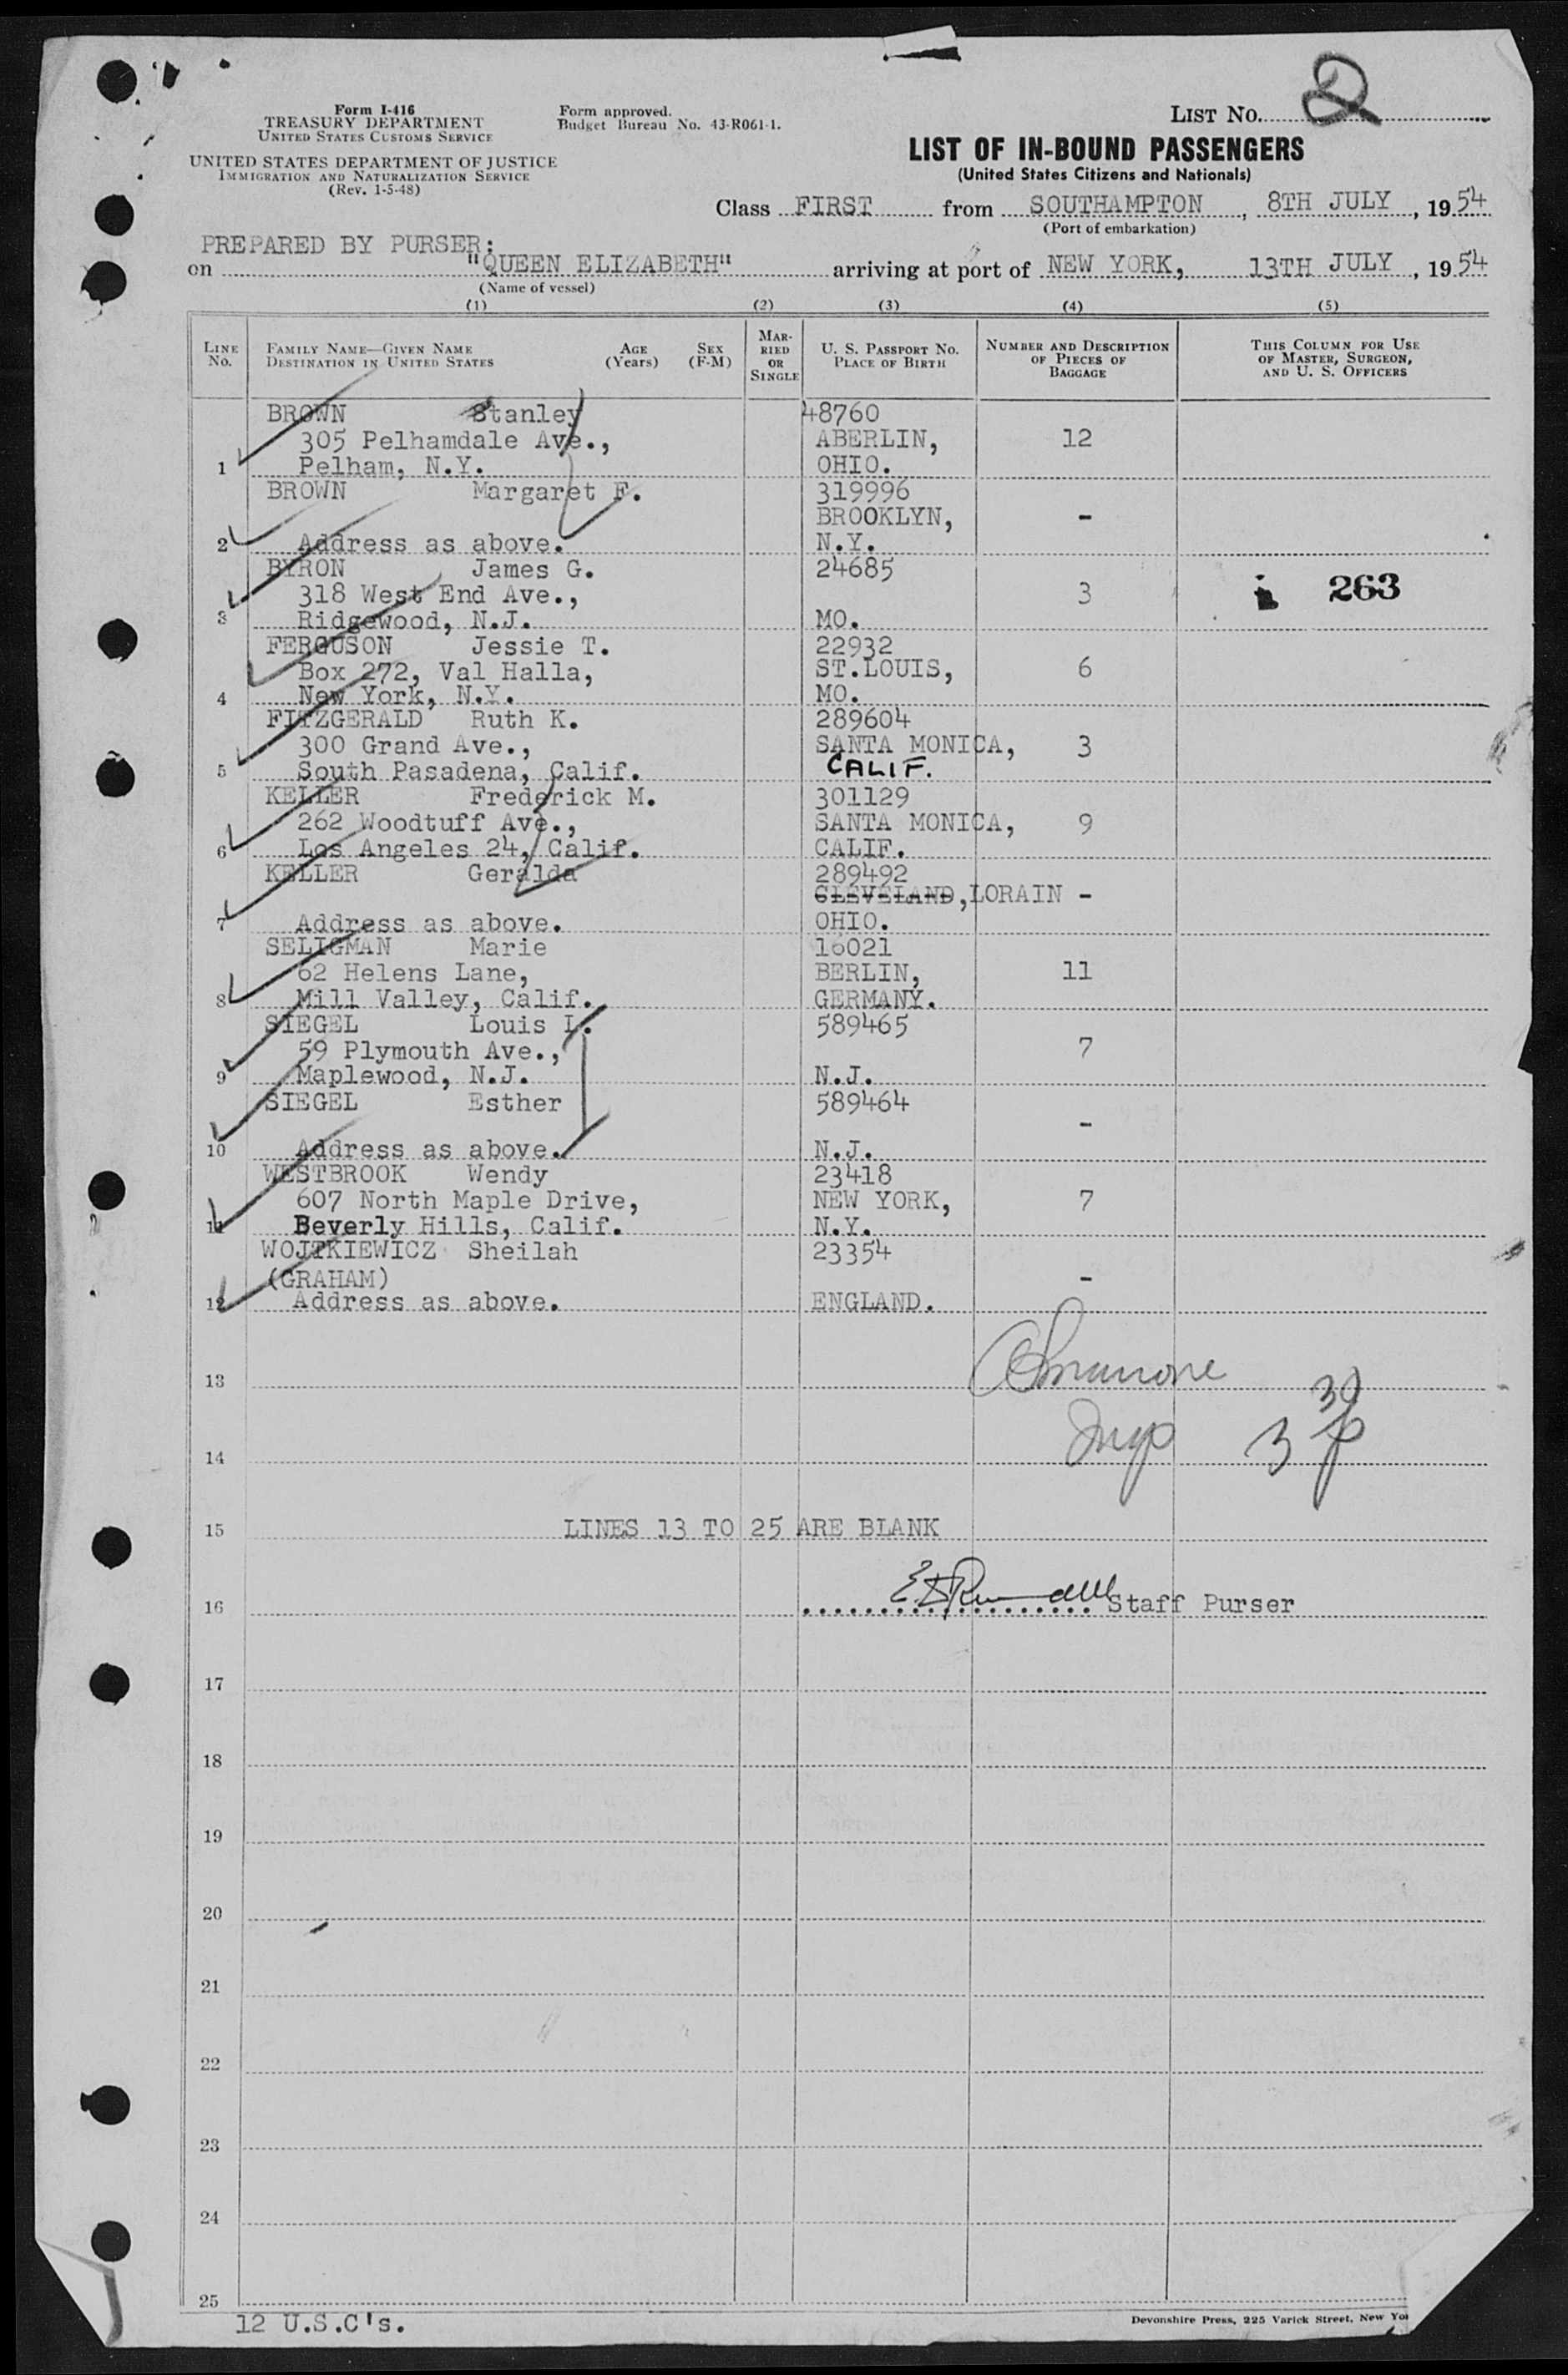 Form I-416
TREASURY DEPARTMENT
UNITED STATES CUSTOMS SERVICE
UNITED STATES DEPARTMENT OF JUSTICE
IMMIGRATION AND NATURALIZATION SERVICE
(Rev. 1-5-48)
Form approved.
Budget Bureau No. 43-R061-1.
LIST No. 2
LIST OF IN-BOUND PASSENGERS
(United States Citizens and Nationals)
Class FIRST from SOUTHAMPTON, 8TH JULY, 1954
(Port of embarkation)
PREPARED BY PURSER:
on "QUEEN ELIZABETH" arriving at port of NEW YORK, 13TH JULY, 1954
(Name of vessel)
(1) (2) (3) (4) (5)
LINE No.
FAMILY NAME—GIVEN NAME
DESTINATION IN UNITED STATES
AGE (Years)
SEX (F-M)
MARRIED OR SINGLE
U. S. PASSPORT No.
PLACE OF BIRTH
NUMBER AND DESCRIPTION
OF PIECES OF
BAGGAGE
THIS COLUMN FOR USE
OF MASTER, SURGEON,
AND U. S. OFFICERS
BROWN Stanley 48760
305 Pelhamdale Ave., ABERLIN, 12
1 Pelham, N.Y. OHIO.
BROWN Margaret F. 319996
BROOKLYN, -
2 Address as above. N.Y.
BYRON James G. 24685
318 West End Ave., 3 263
3 Ridgewood, N.J. MO.
FERGUSON Jessie T. 22932
Box 272, Val Halla, ST.LOUIS, 6
4 New York, N.Y. MO.
FITZGERALD Ruth K. 289604
300 Grand Ave., SANTA MONICA, 3
5 South Pasadena, Calif. CALIF.
KELLER Frederick M. 301129
262 Woodtuff Ave., SANTA MONICA, 9
6 Los Angeles 24, Calif. CALIF.
KELLER Geralda 289492
CLEVELAND, LORAIN -
7 Address as above. OHIO.
SELIGMAN Marie 16021
62 Helens Lane, BERLIN, 11
8 Mill Valley, Calif. GERMANY.
SIEGEL Louis L. 589465
59 Plymouth Ave., 7
9 Maplewood, N.J. N.J.
SIEGEL Esther 589464
-
10 Address as above. N.J.
WESTBROOK Wendy 23418
607 North Maple Drive, NEW YORK, 7
11 Beverly Hills, Calif. N.Y.
WOJTKIEWICZ Sheilah 23354
(GRAHAM) -
12 Address as above. ENGLAND.
13
14
15 LINES 13 TO 25 ARE BLANK
16 Staff Purser
17
18
19
20
21
22
23
24
25
12 U.S.C's.
Devonshire Press, 225 Varick Street, New